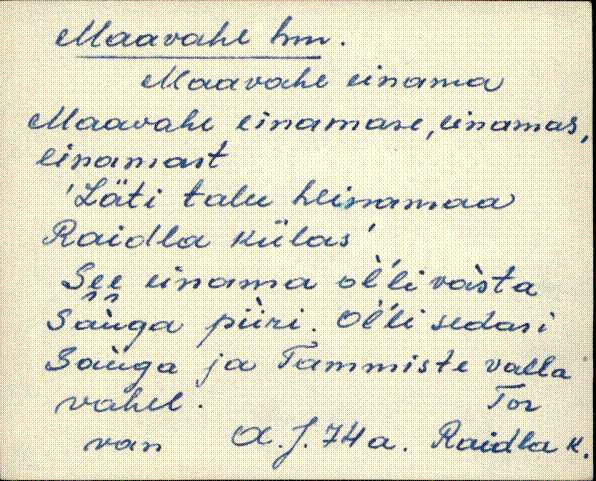 Maavahe hm.
Maavahe einama
Maavahe einamase, einamas,
einamast
'Läti talu heinamaa
Raidla külas'
See einama ol'l'i vasta
Sauga piiri. Ol'l'i sedasi
Sauga ja Tammiste valla
vahel. Tor
van A. J. 74 a. Raidla k.